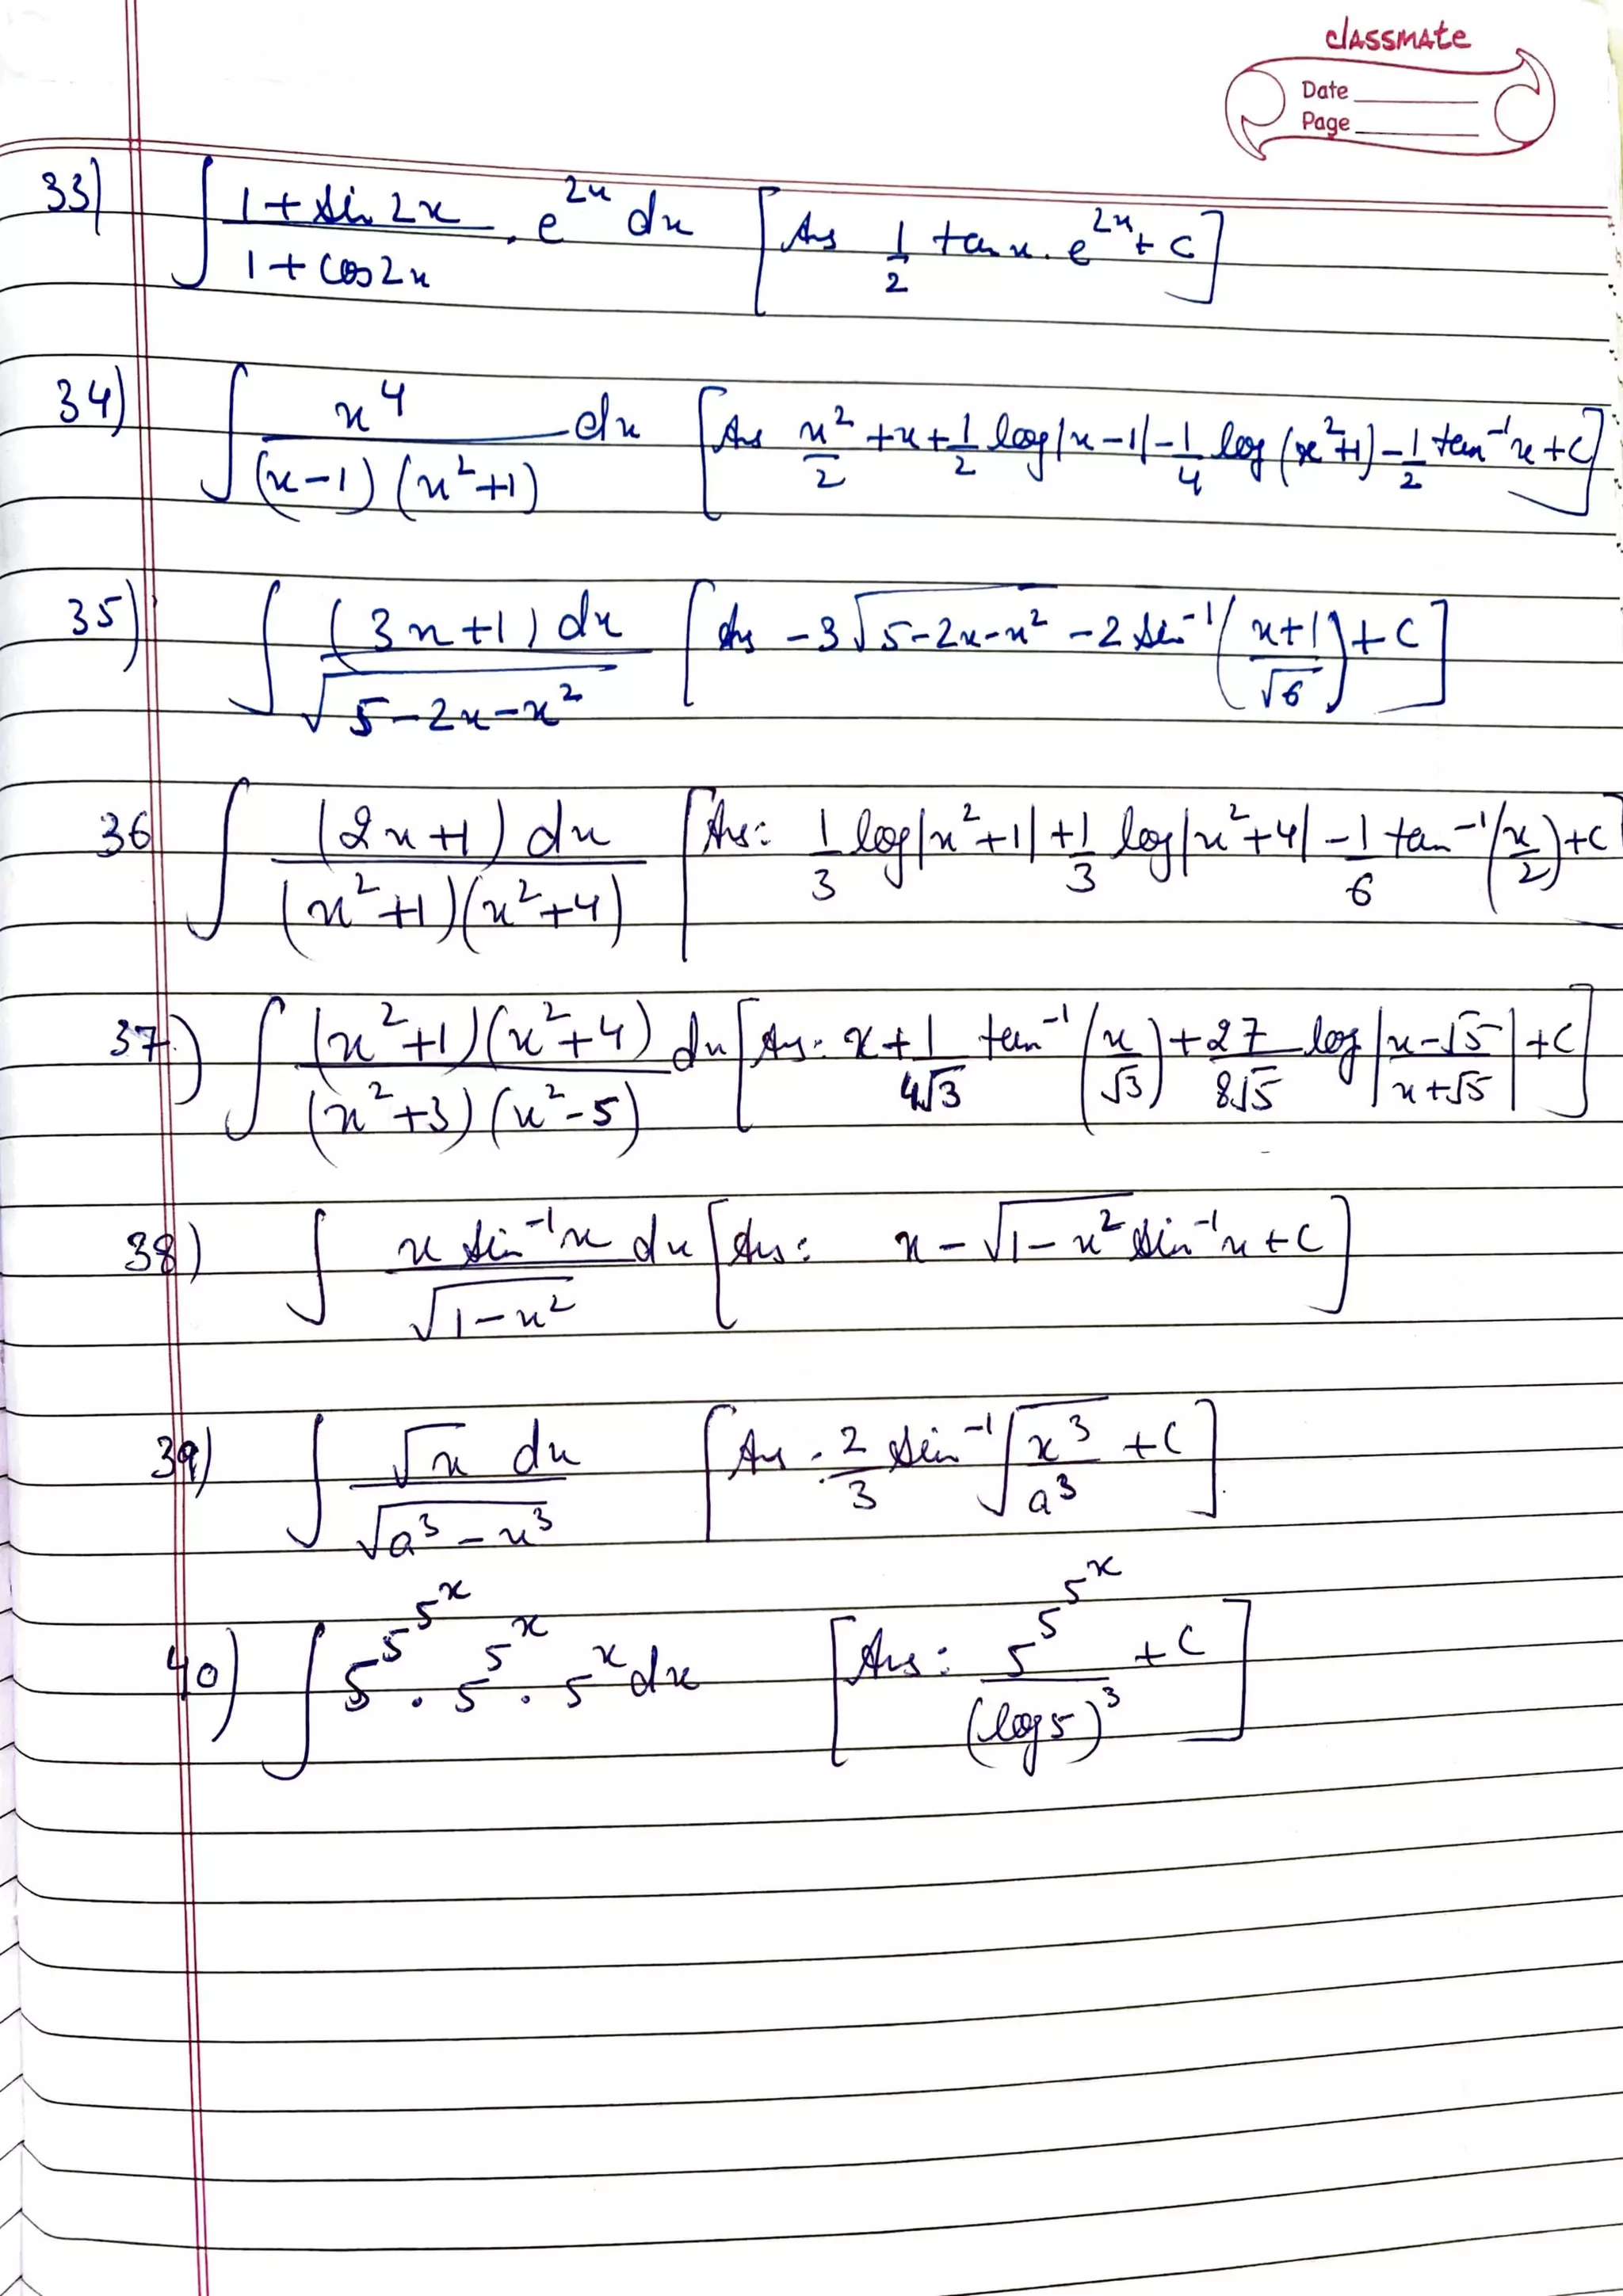 classmate
Date
Page
33) ∫ (1 + sin 2x)/(1 + cos 2x) . e^(2x) dx [Ans 1/2 tan x . e^(2x) + C]
34) ∫ x^4/((x-1)(x^2+1)) dx [Ans x^2/2 + x + 1/2 log|x-1| - 1/4 log(x^2+1) - 1/2 tan^-1 x + C]
35) ∫ (3x+1) dx/√(5-2x-x^2) [Ans -3√(5-2x-x^2) - 2 sin^-1((x+1)/√6) + C]
36 ∫ (2x+1) dx/((x^2+1)(x^2+4)) [Ans: 1/3 log|x^2+1| + 1/3 log|x^2+4| - 1/6 tan^-1(x/2) + C]
37.) ∫ (x^2+1)(x^2+4)/((x^2+3)(x^2-5)) dx [Ans: x + 1/(4√3) tan^-1(x/√3) + 27/(8√5) log|(x-√5)/(x+√5)| + C]
38) ∫ x sin^-1 x/√(1-x^2) dx [Ans: x - √(1-x^2) sin^-1 x + C]
39) ∫ √x dx/√(a^3-x^3) [Ans: 2/3 sin^-1 √(x^3/a^3) + C].
40) ∫ 5^(5^(5^x)) . 5^(5^x) . 5^x dx [Ans: 5^(5^(5^x))/(log 5)^3 + C]